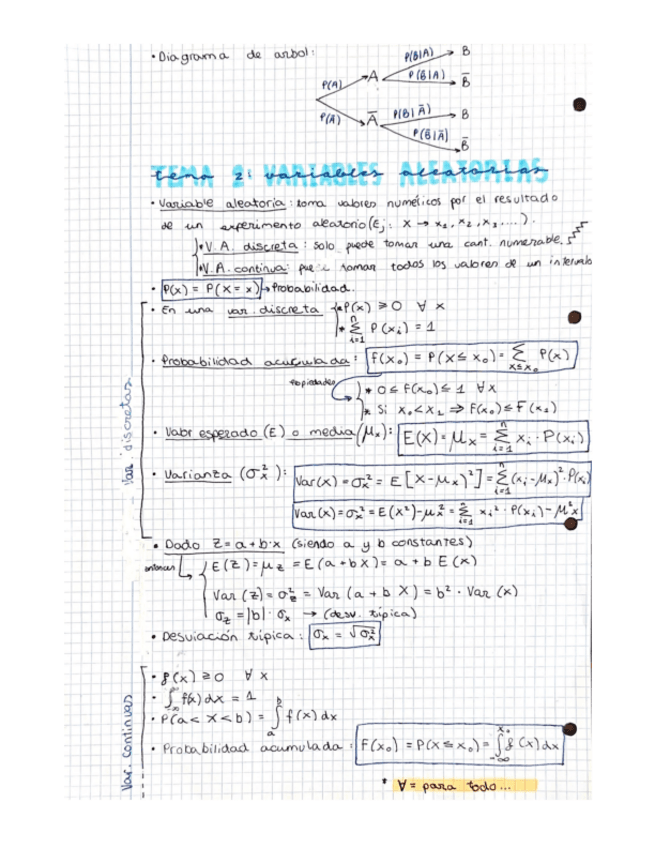 • Diagrama de arbol:
P(A) A P(B|A) B
P(B̅|A) B̅
P(A̅) A̅ P(B|A̅) B
P(B̅|A̅) B̅
TEMA 2: VARIABLES ALEATORIAS
• Variable aleatoria: toma valores numéricos por el resultado
de un experimento aleatorio (Ej: X → x₁, x₂, x₃ ....).
• V.A. discreta: solo puede tomar una cant. numerable.
• V.A. continua: tomar todos los valores de un intervalo
• P(x) = P(X = x) → Probabilidad.
Var. discretas
• En una var. discreta * P(x) ≥ 0 ∀ x
* ∑ᵢ₌₁ⁿ P(xᵢ) = 1
• Probabilidad acumulada: F(x₀) = P(X ≤ x₀) = ∑ x≤x₀ P(x)
Propiedades
* 0 ≤ F(x₀) ≤ 1 ∀ x
* Si x₀ < x₁ ⇒ F(x₀) ≤ F(x₁)
• Valor esperado (E) o media (μₓ): E(X) = μₓ = ∑ᵢ₌₁ⁿ xᵢ · P(xᵢ)
• Varianza (σₓ²): Var(x) = σₓ² = E[X-μₓ)²] = ∑ᵢ₌₁ⁿ (xᵢ-μₓ)² · P(xᵢ)
Var(x) = σₓ² = E(X²) - μₓ² = ∑ᵢ₌₁ⁿ xᵢ² · P(xᵢ) - μ²x
• Dado Z = a + b·x (siendo a y b constantes)
entonces E(Z) = μz = E(a + bX) = a + b E(x)
Var(z) = σz² = Var(a + b X) = b² · Var(x)
σz = |b| · σₓ → (desv. típica)
• Desviación típica: σₓ = √σₓ²
Var. continuas
• f(x) ≥ 0 ∀ x
• ∫₋∞^∞ f(x) dx = 1
• P(a < X < b) = ∫ₐᵇ f(x) dx
• Probabilidad acumulada: F(x₀) = P(X ≤ x₀) = ∫₋∞^x₀ f(x) dx
* ∀ = para todo...